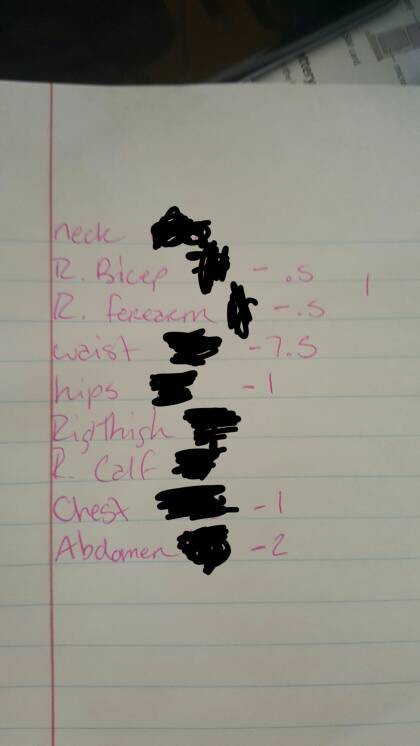 neck
R. Bicep - .5
R. forearm - .5
waist - 7.5
hips - 1
Rigthigh
R. Calf
Chest - 1
Abdomen - 2